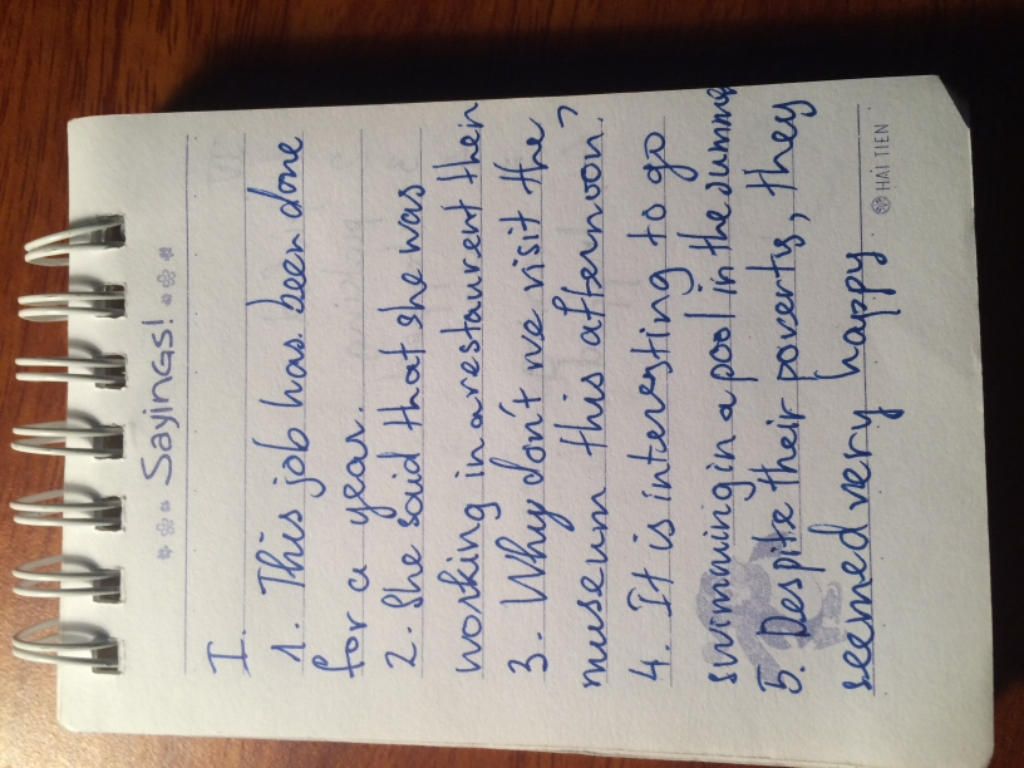 Sayings!
I.
1. This job has been done
for a year.
2. She said that she was
working in a restaurent then
3. Why don't we visit the
museum this afternoon?
4. It is interesting to go
swimming in a pool in the summer
5. Despite their poverty, they
seemed very happy
HẢI TIẾN